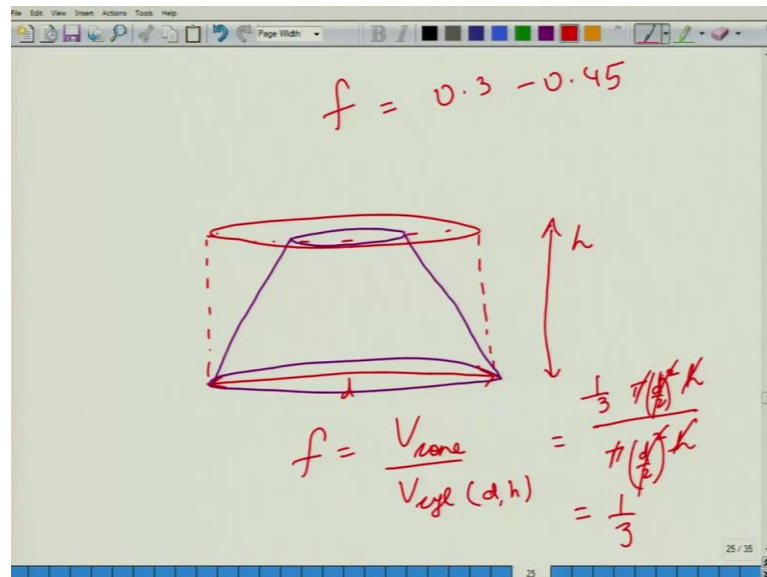 File Edit View Insert Actions Tools Help
Page Width
B I
f = 0.3 - 0.45
h
d
f = V_cone / V_cyl (d, h) = 1/3 π(d/2)² h / π(d/2)² h
= 1/3
25 / 35
25